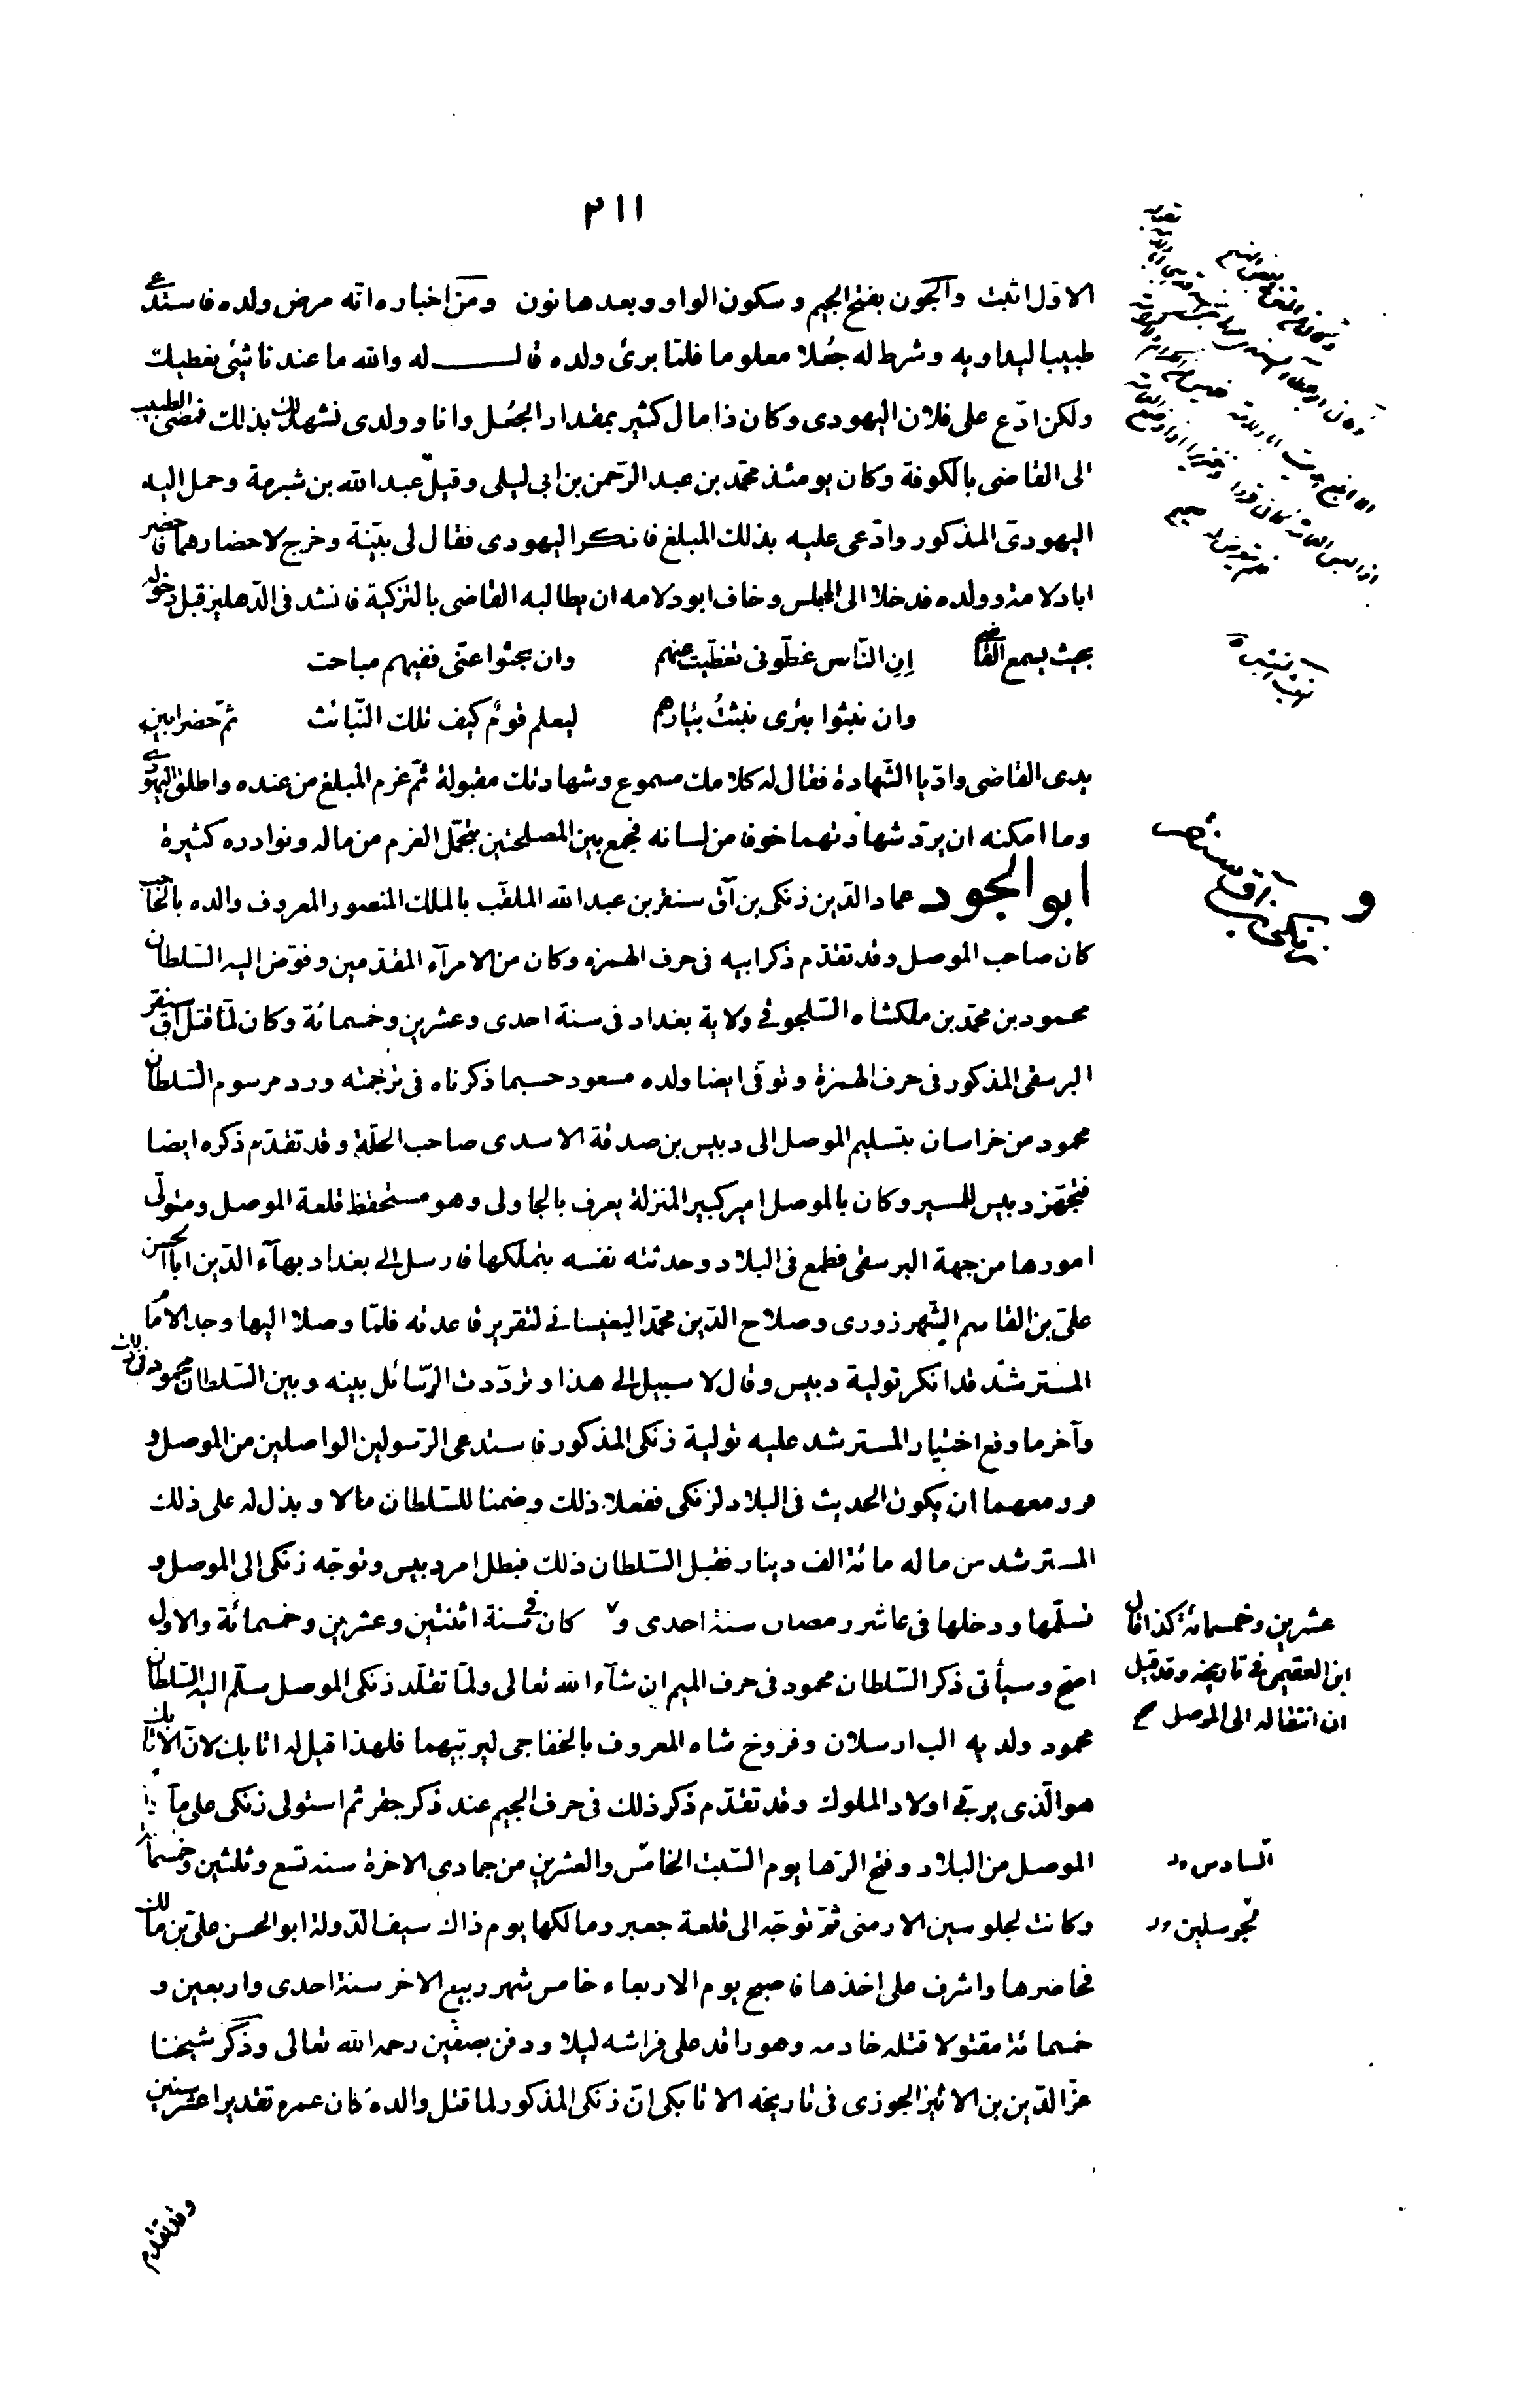 ٢١١
الاول اثبت والجون بفتح الجيم وسكون الواو وبعدها نون ومن اخباره انه مرض ولده فاستدعى
طبيبا ليداويه وشرط له جُعلا معلوما فلمّا برئ ولده قال له والله ما عندنا شئ نعطيك
ولكن ادّع على فلان اليهودى وكان ذا مال كثير بمقدار الجُعل وانا وولدى نشهد لك بذلك فمضى الطبيب
الى القاضى بالكوفة وكان يومئذ محمّد بن عبد الرّحمن بن ابى ليلى وقيل عبد الله بن شبرمة وحمل اليه
اليهودىّ المذكور وادّعى عليه بذلك المبلغ فانكر اليهودى فقال لى بيّنة وخرج لاحضارهما فاحضر
ابا دلامة وولده فدخلا الى المجلس وخاف ابو دلامه ان يطالبه القاضى بالتزكية فانشد فى الدّهليز قبل دخوله
بحيث يسمع القاضى اِنِ النّاس غطّونى تغطّيت عنهم وان بحثوا عنّى ففيهم مباحث
وان نبثوا بئرى نبثتُ بئارهم ليعلم قومٌ كيف تلك النّبائث ثمّ حضرا بين
يدى القاضى وادّيا الشّهادة فقال له كلامك مسموع وشهادتك مقبولة ثمّ غرم المبلغ من عنده واطلق اليهودى
وما امكنه ان يردّ شهادتهما خوفا من لسانه فجمع بين المصلحتين بتحمّل الغرم من ماله ونوادره كثيرة
ابو الجود عماد الدّين زنكى بن آق سنقر بن عبد الله الملقّب بالملك المنصور المعروف والده بالحاجب
و
زنكى بن آق سنقر
كان صاحب الموصل وقد تقدّم ذكر ابيه فى حرف الهمزه وكان من الامرآء المقدّمين وفوّض اليه السّلطان
محمود بن محمّد بن ملكشاه السّلجوقى ولاية بغداد فى سنة احدى وعشرين وخمسمائة وكان لمّا قتل آق سنقر
البرسقى المذكور فى حرف الهمزة وتوفّى ايضا ولده مسعود حسبما ذكرناه فى ترجمته ورد مرسوم السّلطان
محمود من خراسان بتسليم الموصل الى دبيس بن صدقة الاسدى صاحب الحلّة وقد تقدّم ذكره ايضا
فتجهّز دبيس للمسير وكان بالموصل امير كبير المنزلة يعرف بالجاولى وهو مستحفظ قلعة الموصل ومتولّى
امورها من جهة البرسقى فطمع فى البلاد وحدثته نفسه بتملكها فارسل الى بغداد بهآء الدّين ابا الحسن
علىّ بن القاسم الشّهرزورى وصلاح الدّين محمّد اليغيسانى لتقرير قاعدته فلمّا وصلا اليها وجد الامام
المسترشد قد انكر تولية دبيس وقال لا سبيل الى هذا وتردّدت الرّسائل بينه وبين السّلطان محمود فى ذلك
وآخر ما وقع اختيار المسترشد عليه تولية زنكى المذكور فاستدعى الرّسولين الواصلين من الموصل و
قرر معهما ان يكون الحديث فى البلاد لزنكى ففعلا ذلك وضمنا للسّلطان مالا وبذل له على ذلك
المسترشد من ماله مائة الف دينار فقبل السّلطان ذلك فبطل امر دبيس وتوجّه زنكى الى الموصل و
تسلّمها ودخلها فى عاشر رمضان سنة احدى و كان فى سنة اثنتين وعشرين وخمسمائة والاول
عشرين وخمسمائة كذا قال
ابن العقيمى فى تاريخه وقد قيل
ان انتقاله الى الموصل صح
اصحّ وسيأتى ذكر السّلطان محمود فى حرف الميم ان شآء الله تعالى ولمّا تقلّد زنكى الموصل سلّم اليه السّلطان
محمود ولديه الب ارسلان وفروخ شاه المعروف بالخفاجى ليربّيهما فلهذا قيل له اتابك لانّ الاتابك
هو الّذى يربّى اولاد الملوك وقد تقدّم ذكر ذلك فى حرف الجيم عند ذكر جقر ثم استولى زنكى على ما
الموصل من البلاد وفتح الرّها يوم السّبت الخامس والعشرين من جمادى الاخرة سنه تسع وثلثين وخمسمائة
السادس
وكانت لجلوسين الارمنى ثمّ توجّه الى قلعة جعبر ومالكها يوم ذاك سيف الدّولة ابو الحسن علىّ بن مالك
لجوسلين
فحاصرها واشرف على اخذها فاصبح يوم الاربعاء خامس شهر ربيع الاخر سنة احدى واربعين و
خمسمائة مقتولا قتله خادمه وهو راقد على فراشه ليلا ودفن بصفّين رحمه الله تعالى وذكر شيخنا
عزّ الدّين بن الاثير الجوزى فى تاريخه الاتابكى انّ زنكى المذكور لما قتل والده كان عمره تقديرا عشر سنين
وقد تقدم